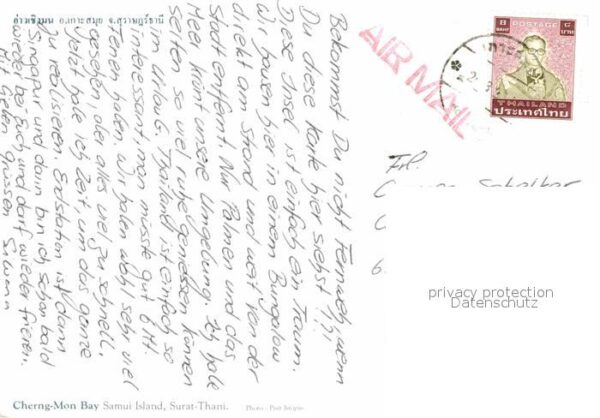 อ่าวเชิงมน อ.เกาะสมุย จ.สุราษฎร์ธานี
Bekommst Du nicht Fernweh, wenn
Du diese Karte hier siehst?!
Diese Insel ist einfach ein Traum.
Wir hausen hier in einem Bungalow
direkt am Strand und weit von der
Stadt entfernt. Nur Palmen und das
Meer krönt unsere Umgebung. Ich habe
selten so viel ruhe geniessen können
im Urlaub. Thailand ist einfach so
interessant, man müsste gut 6 Mt.
Ferien haben. Wir haben wohl sehr viel
gesehen, aber alles viel zu schnell.
Jetzt habe ich Zeit, um das ganze
zu realisieren. Endstation ist dann
Singapur und dann bin ich schon bald
wieder bei Euch und darf wieder frieren.
Mit lieben Grüssen
AIR MAIL
8 BAHT POSTAGE ๘ บาท
THAILAND
ประเทศไทย
Frl.
6
privacy protection
Datenschutz
Cherng-Mon Bay Samui Island, Surat-Thani.